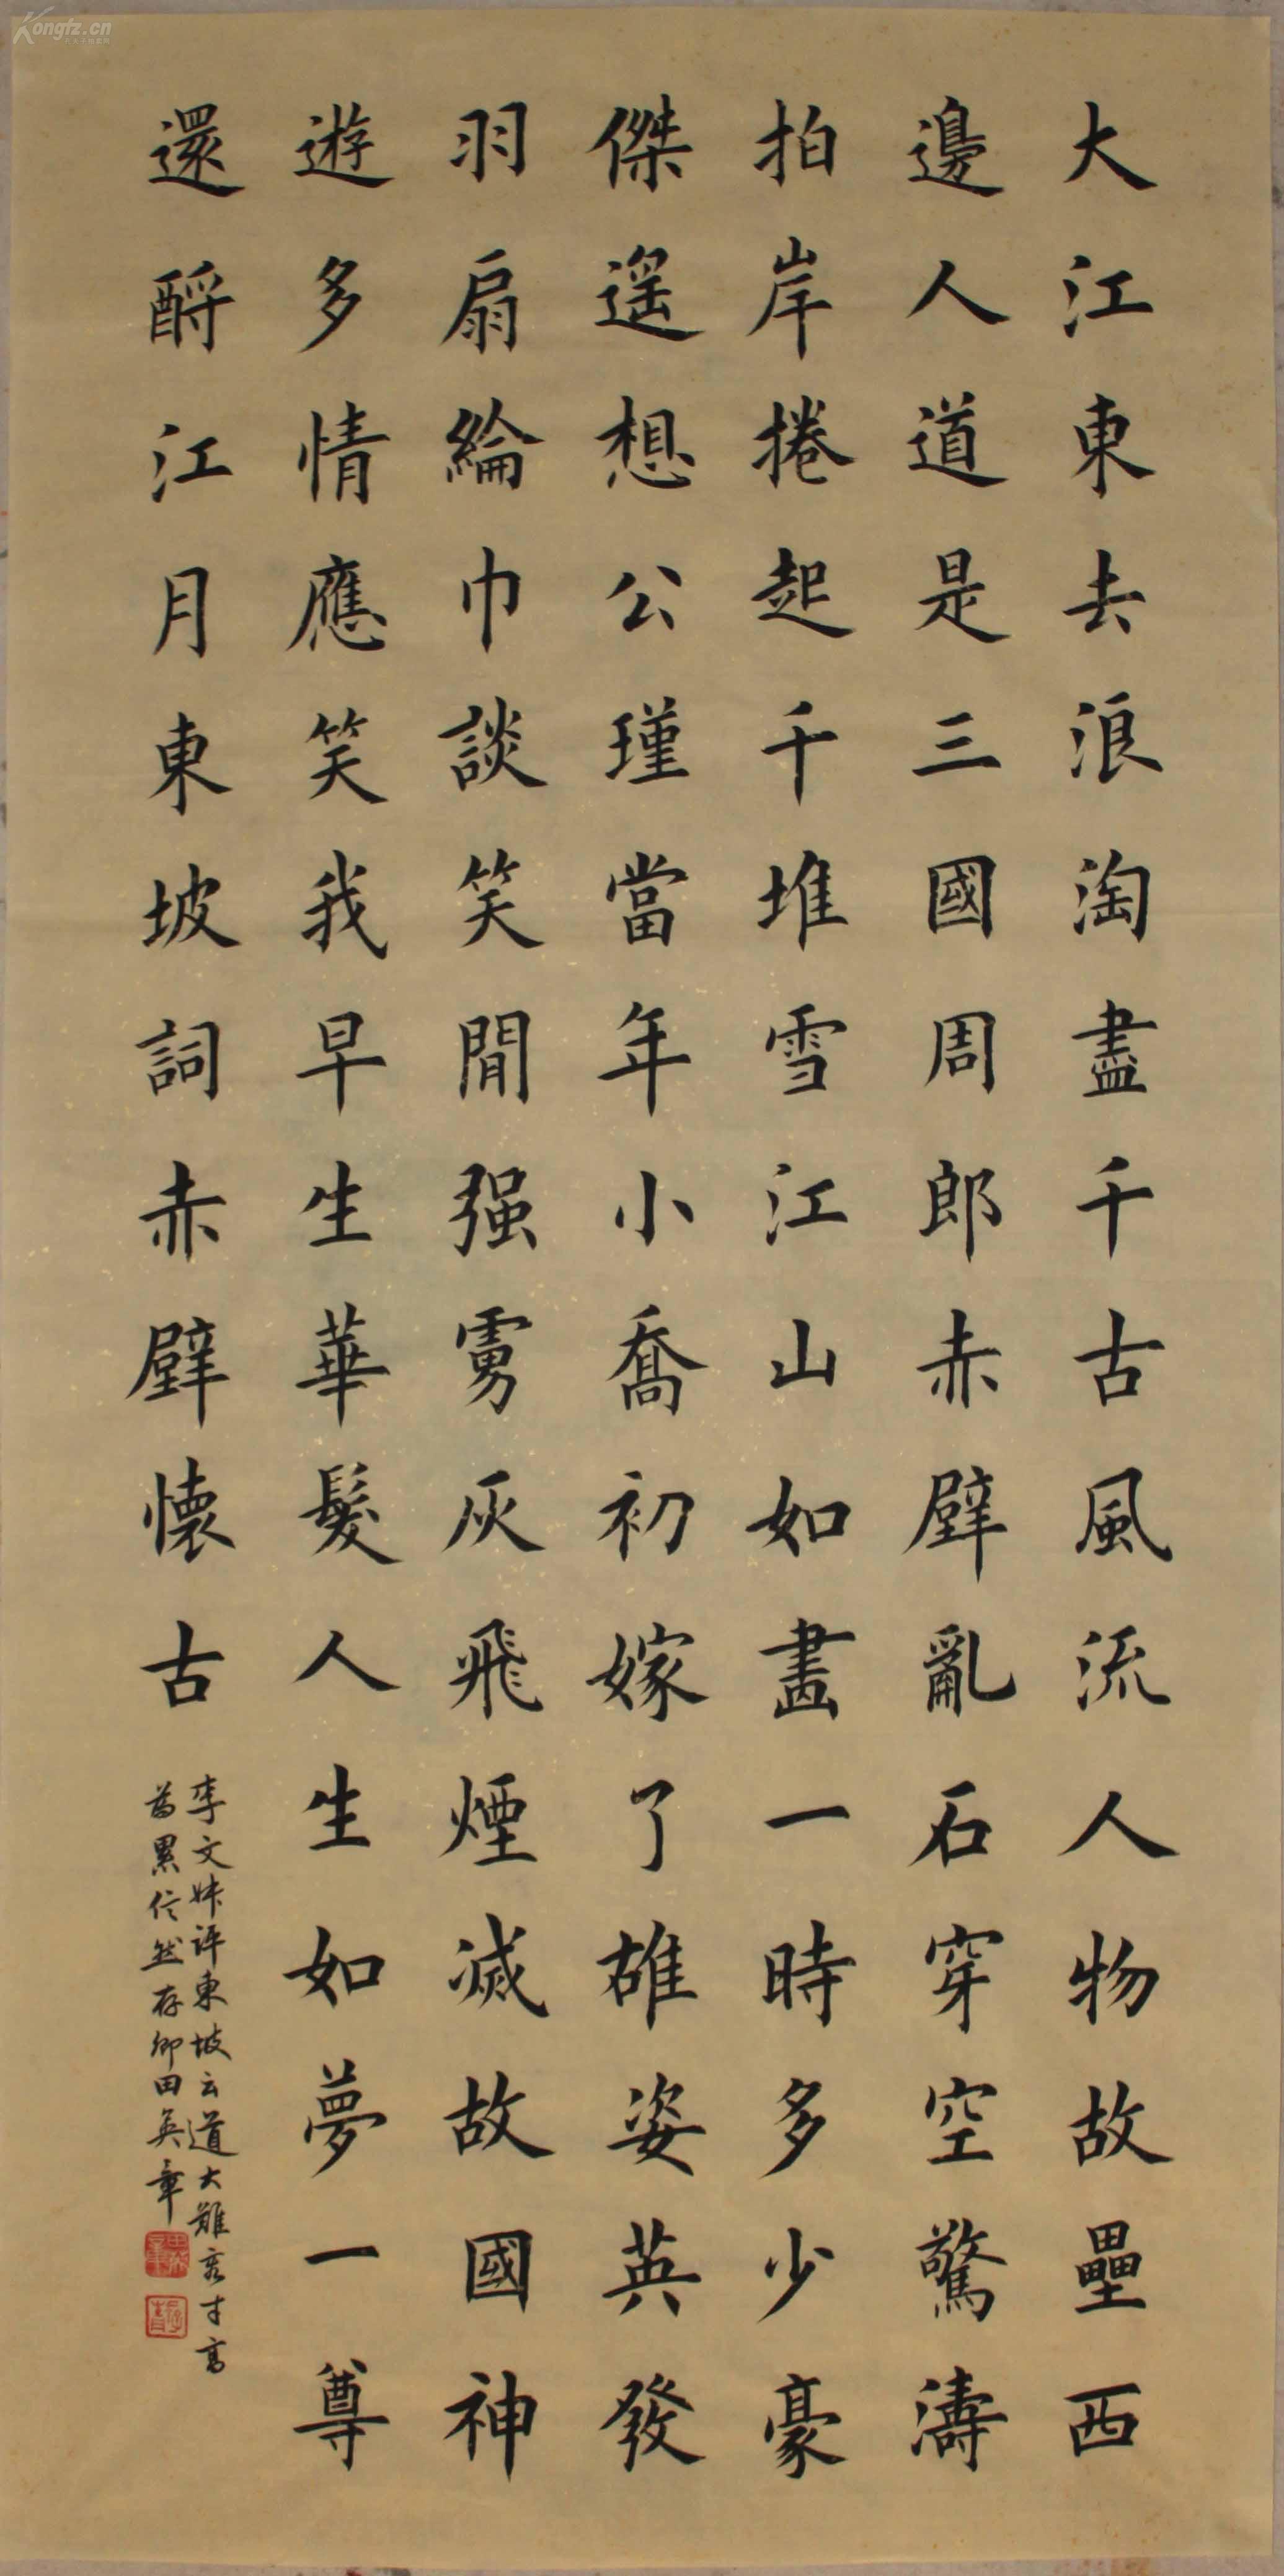 大江東去浪淘盡千古風流人物故壘西
邊人道是三國周郎赤壁亂石穿空驚濤
拍岸捲起千堆雪江山如畫一時多少豪
傑遥想公瑾當年小喬初嫁了雄姿英發
羽扇綸巾談笑間强虜灰飛煙滅故國神
遊多情應笑我早生華髮人生如夢一尊
還酹江月東坡詞赤壁懷古
李文妹评東坡云道大難容才高
為累信然存卿田英章
Kongfz.cn